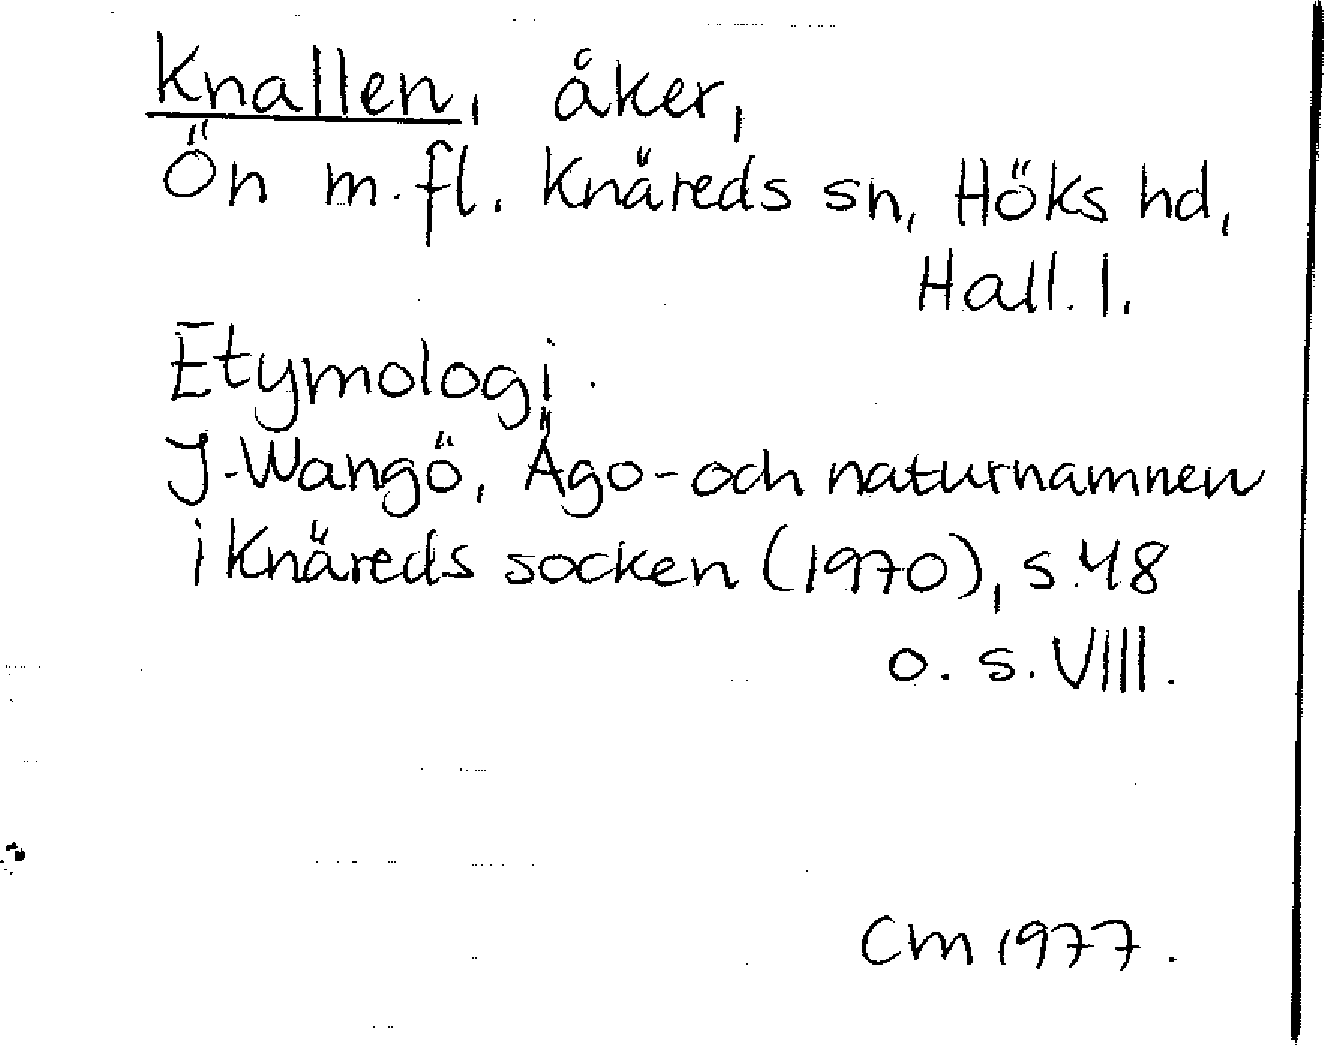 Knallen, åker,
Ön m.fl. Knäreds sn, Höks hd,
Hall. l.
Etymologi.
J. Wangö, Ägo- och naturnamnen
i Knäreds socken (1970), s. 48
o. s. VIII.
CM 1977.